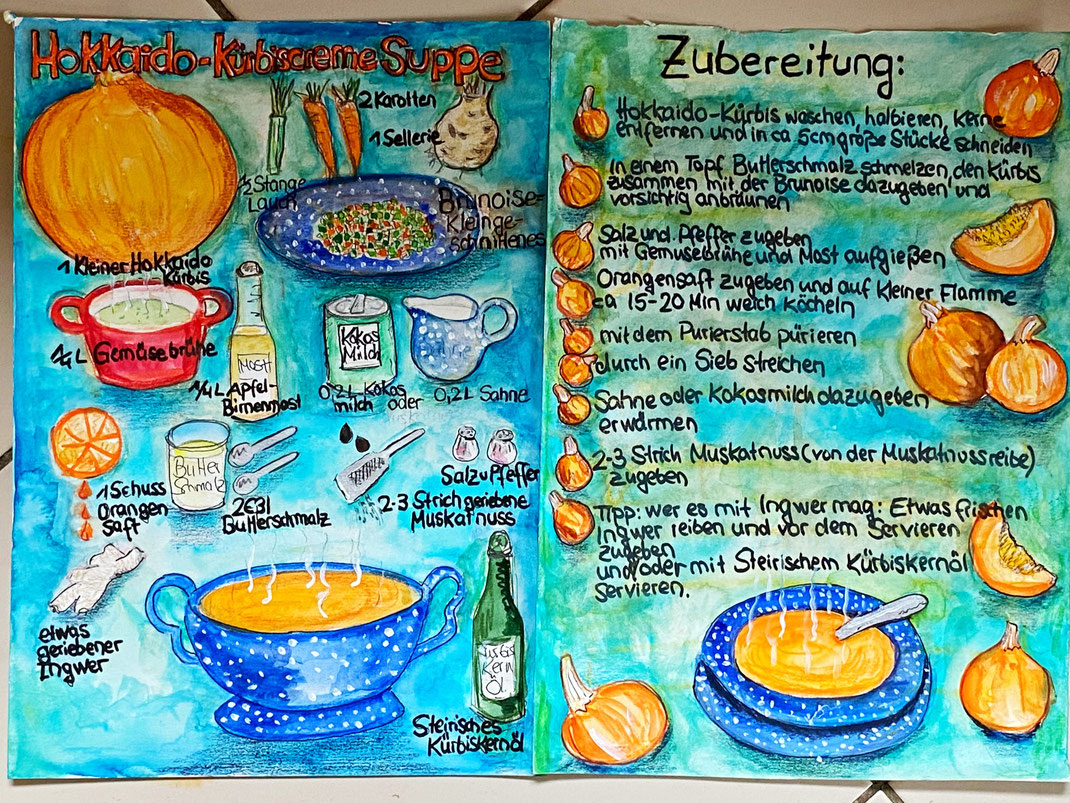 Hokkaido-Kürbiscreme Suppe
2 Karotten
1 Sellerie
1/2 Stange
Lauch
Brunoise=
Kleinge-
schnittenes
1 Kleiner Hokkaido
Kürbis
1/4 L Gemüsebrühe
MOST
1/4 L Apfel-
Birnenmost
Kokos
Milch
0,2 L Kokos
milch oder
Sahne
0,2 L Sahne
1 Schuss
Orangen
Saft
Butter
Schmalz
2 Eßl
Butterschmalz
2-3 Strich geriebene
Muskatnuss
Salz u Pfeffer
etwas
geriebener
Ingwer
Kern
Öl
Steirisches
Kürbiskernöl
Zubereitung:
Hokkaido-Kürbis waschen, halbieren, Kerne
entfernen und in ca 5cm große Stücke schneiden
In einem Topf Butterschmalz schmelzen, den Kürbis
zusammen mit der Brunoise dazugeben und
vorsichtig anbräunen
Salz und Pfeffer zugeben
mit Gemüsebrühe und Most aufgießen
Orangensaft zugeben und auf Kleiner Flamme
ca 15-20 Min weich Köcheln
mit dem Pürierstab pürieren
durch ein Sieb streichen
Sahne oder Kokosmilch dazugeben
erwärmen
2-3 Strich Muskatnuss (von der Muskatnussreibe)
zugeben
Tipp: wer es mit Ingwer mag: Etwas frischen
Ingwer reiben und vor dem Servieren
zugeben
und/oder mit Steirischem Kürbiskernöl
servieren.